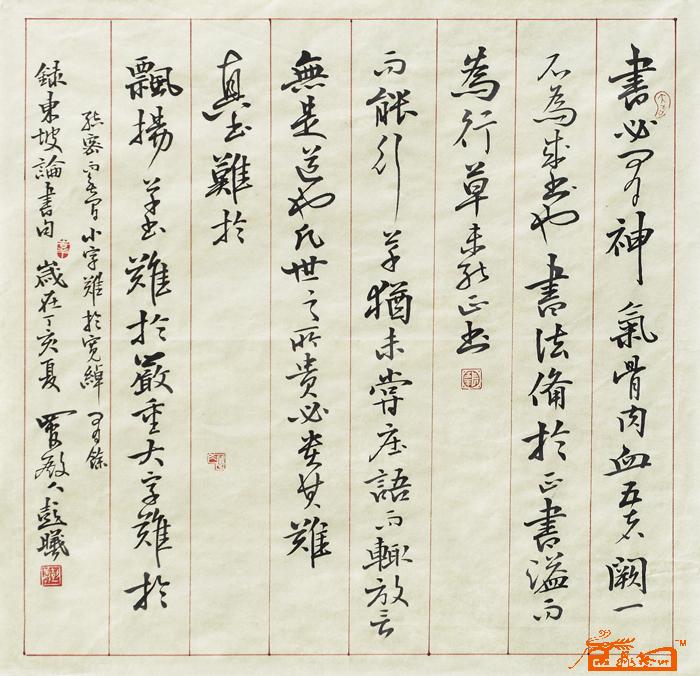 書必有神氣骨肉血五者闕一
不為成書也書法備於正書溢而
為行草未能正書
而能行草猶未嘗莊語而輒放言
無是道也凡世之所貴必貴其難
真書難於
飄揚草書難於嚴重大字難於
結密而無間小字難於寬綽而有餘
錄東坡論書句 歲在丁亥夏